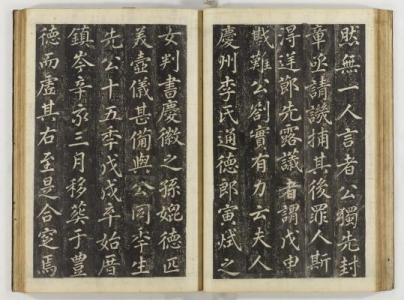 然無一人言者公獨先封
章亟請譏捕其後罪人斯
得逆節先露議者謂戊申
戡難公劄實有力云夫人
慶州李氏通德郎寅烒之
女判書慶徽之孫婉德匹
美壼儀甚備與公同秊生
先公十五秊戊戌卒始厝
鎮岑辛亥三月移葬于豊
德而虛其右至是合窆焉